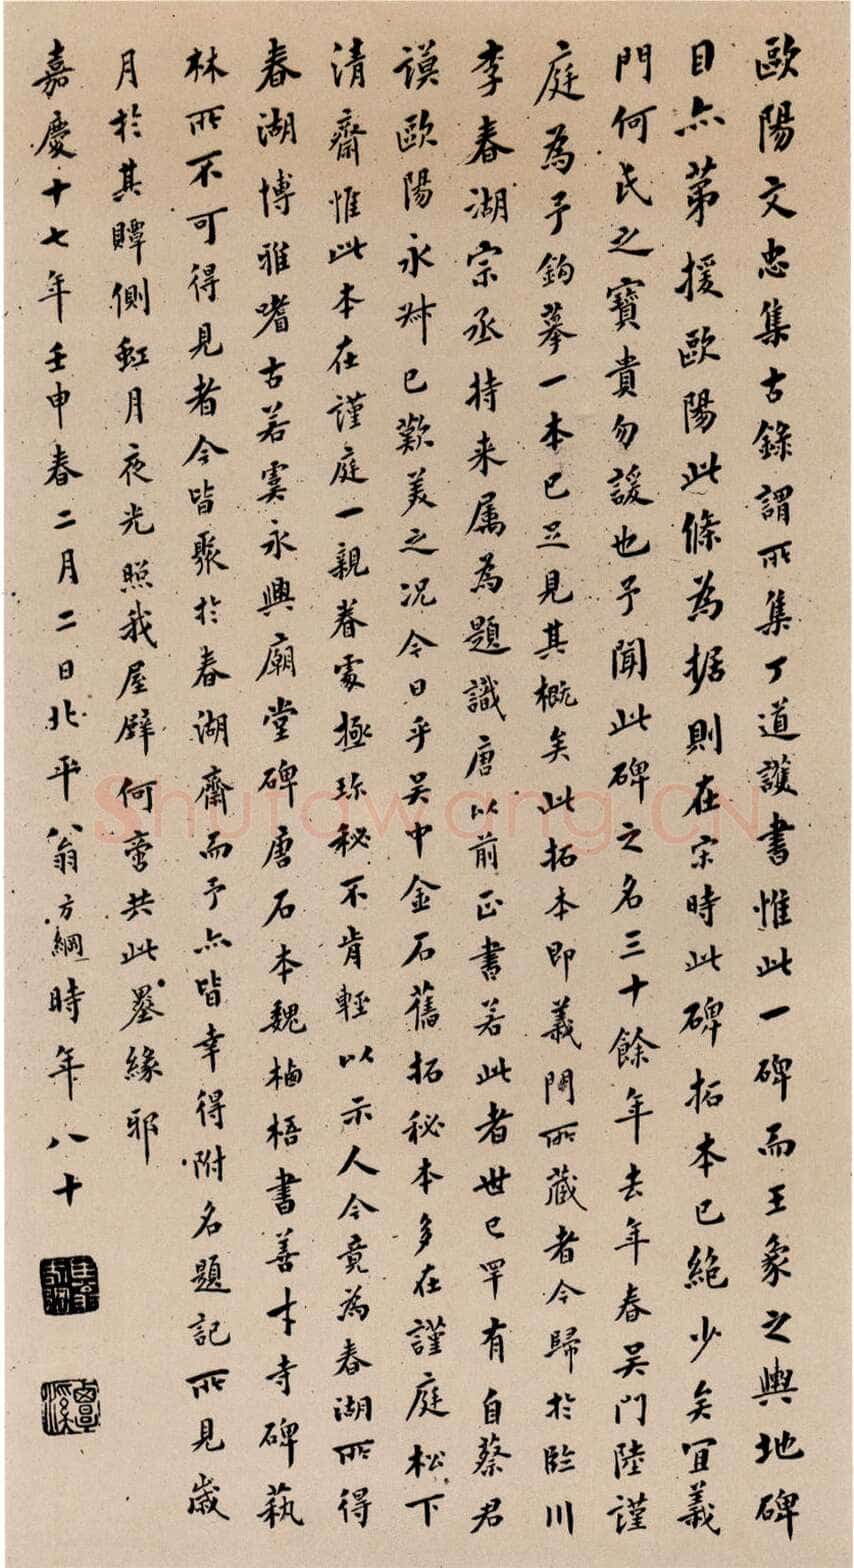 歐陽文忠集古錄謂所集丁道護書惟此一碑而王象之輿地碑
目亦第援歐陽此條為据則在宋時此碑拓本已絕少矣宜義
門何氏之寶貴勿諼也予聞此碑之名三十餘年去年春吴門陸謹
庭為予鈎摹一本已足見其概矣此拓本即義門所藏者今歸於臨川
李春湖宗丞持来属為題識唐以前正書若此者世已罕有自蔡君
謨歐陽永叔已歎美之况今日乎吴中金石舊拓秘本多在謹庭松下
清齋惟此本在謹庭一親眷處極珍秘不肯輕以示人今竟為春湖所得
春湖博雅嗜古若虞永興廟堂碑唐石本魏栖梧書善才寺碑蓺
林所不可得見者今皆聚於春湖齋而予亦皆幸得附名題記所見歲
月於其贉側虹月夜光照我屋壁何啻共此墨緣耶
嘉慶十七年壬申春二月二日北平翁方綱時年八十
覃溪
Shufawang.CN